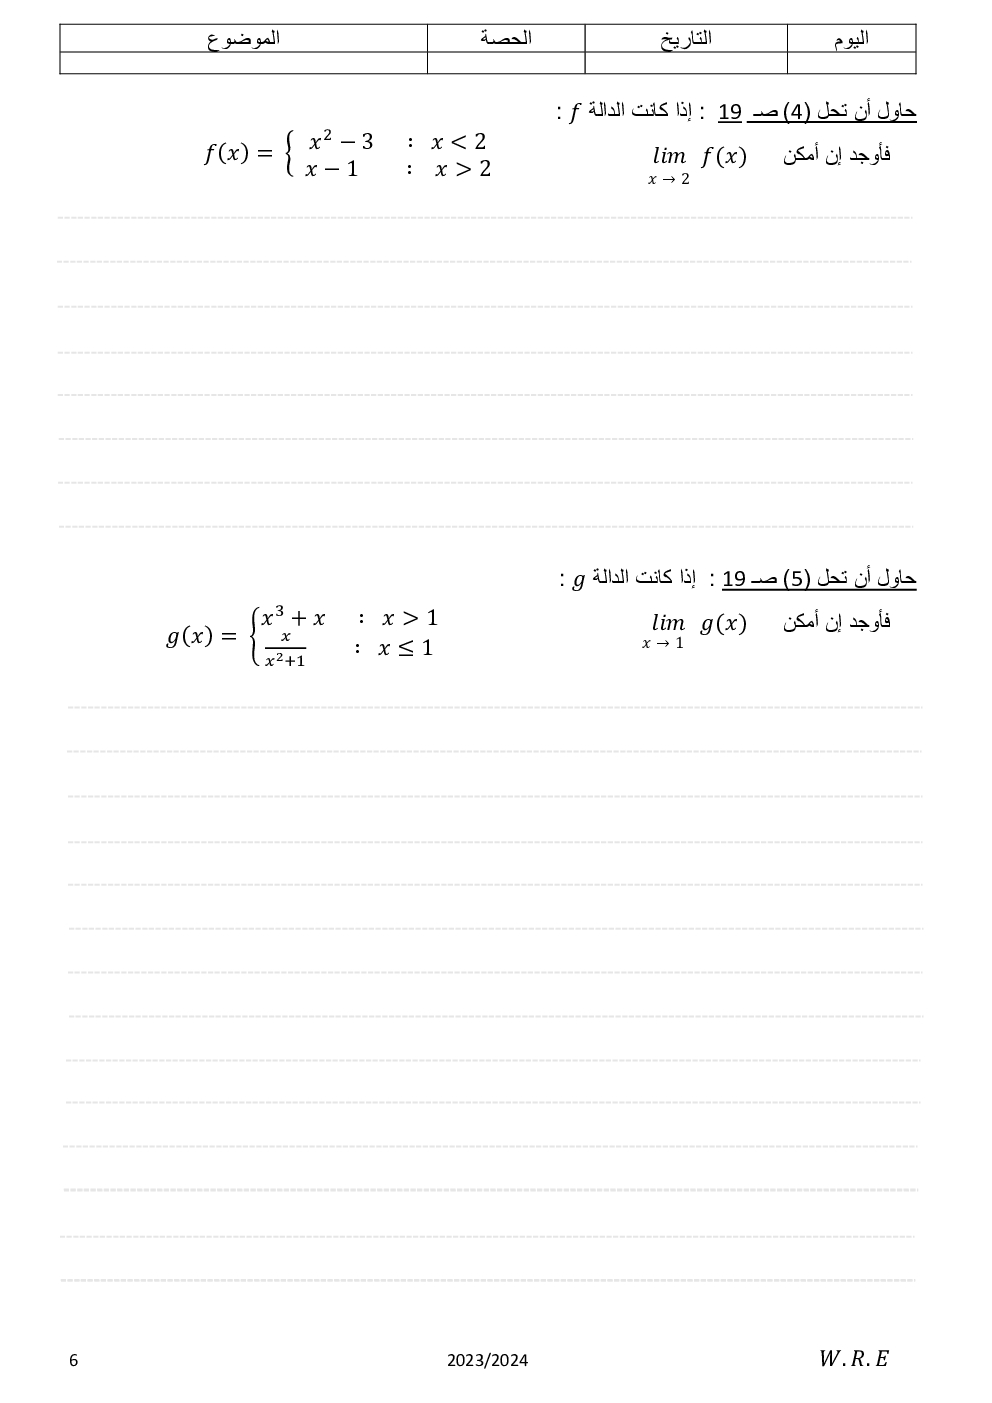 اليوم التاريخ الحصة الموضوع
حاول أن تحل (4) صـ 19 : إذا كانت الدالة f :
f(x) = { x² − 3 : x < 2
x − 1 : x > 2
فأوجد إن أمكن lim f(x)
x → 2
حاول أن تحل (5) صـ 19 : إذا كانت الدالة g :
g(x) = { x³ + x : x > 1
x/(x²+1) : x ≤ 1
فأوجد إن أمكن lim g(x)
x → 1
6 2023/2024 W.R.E